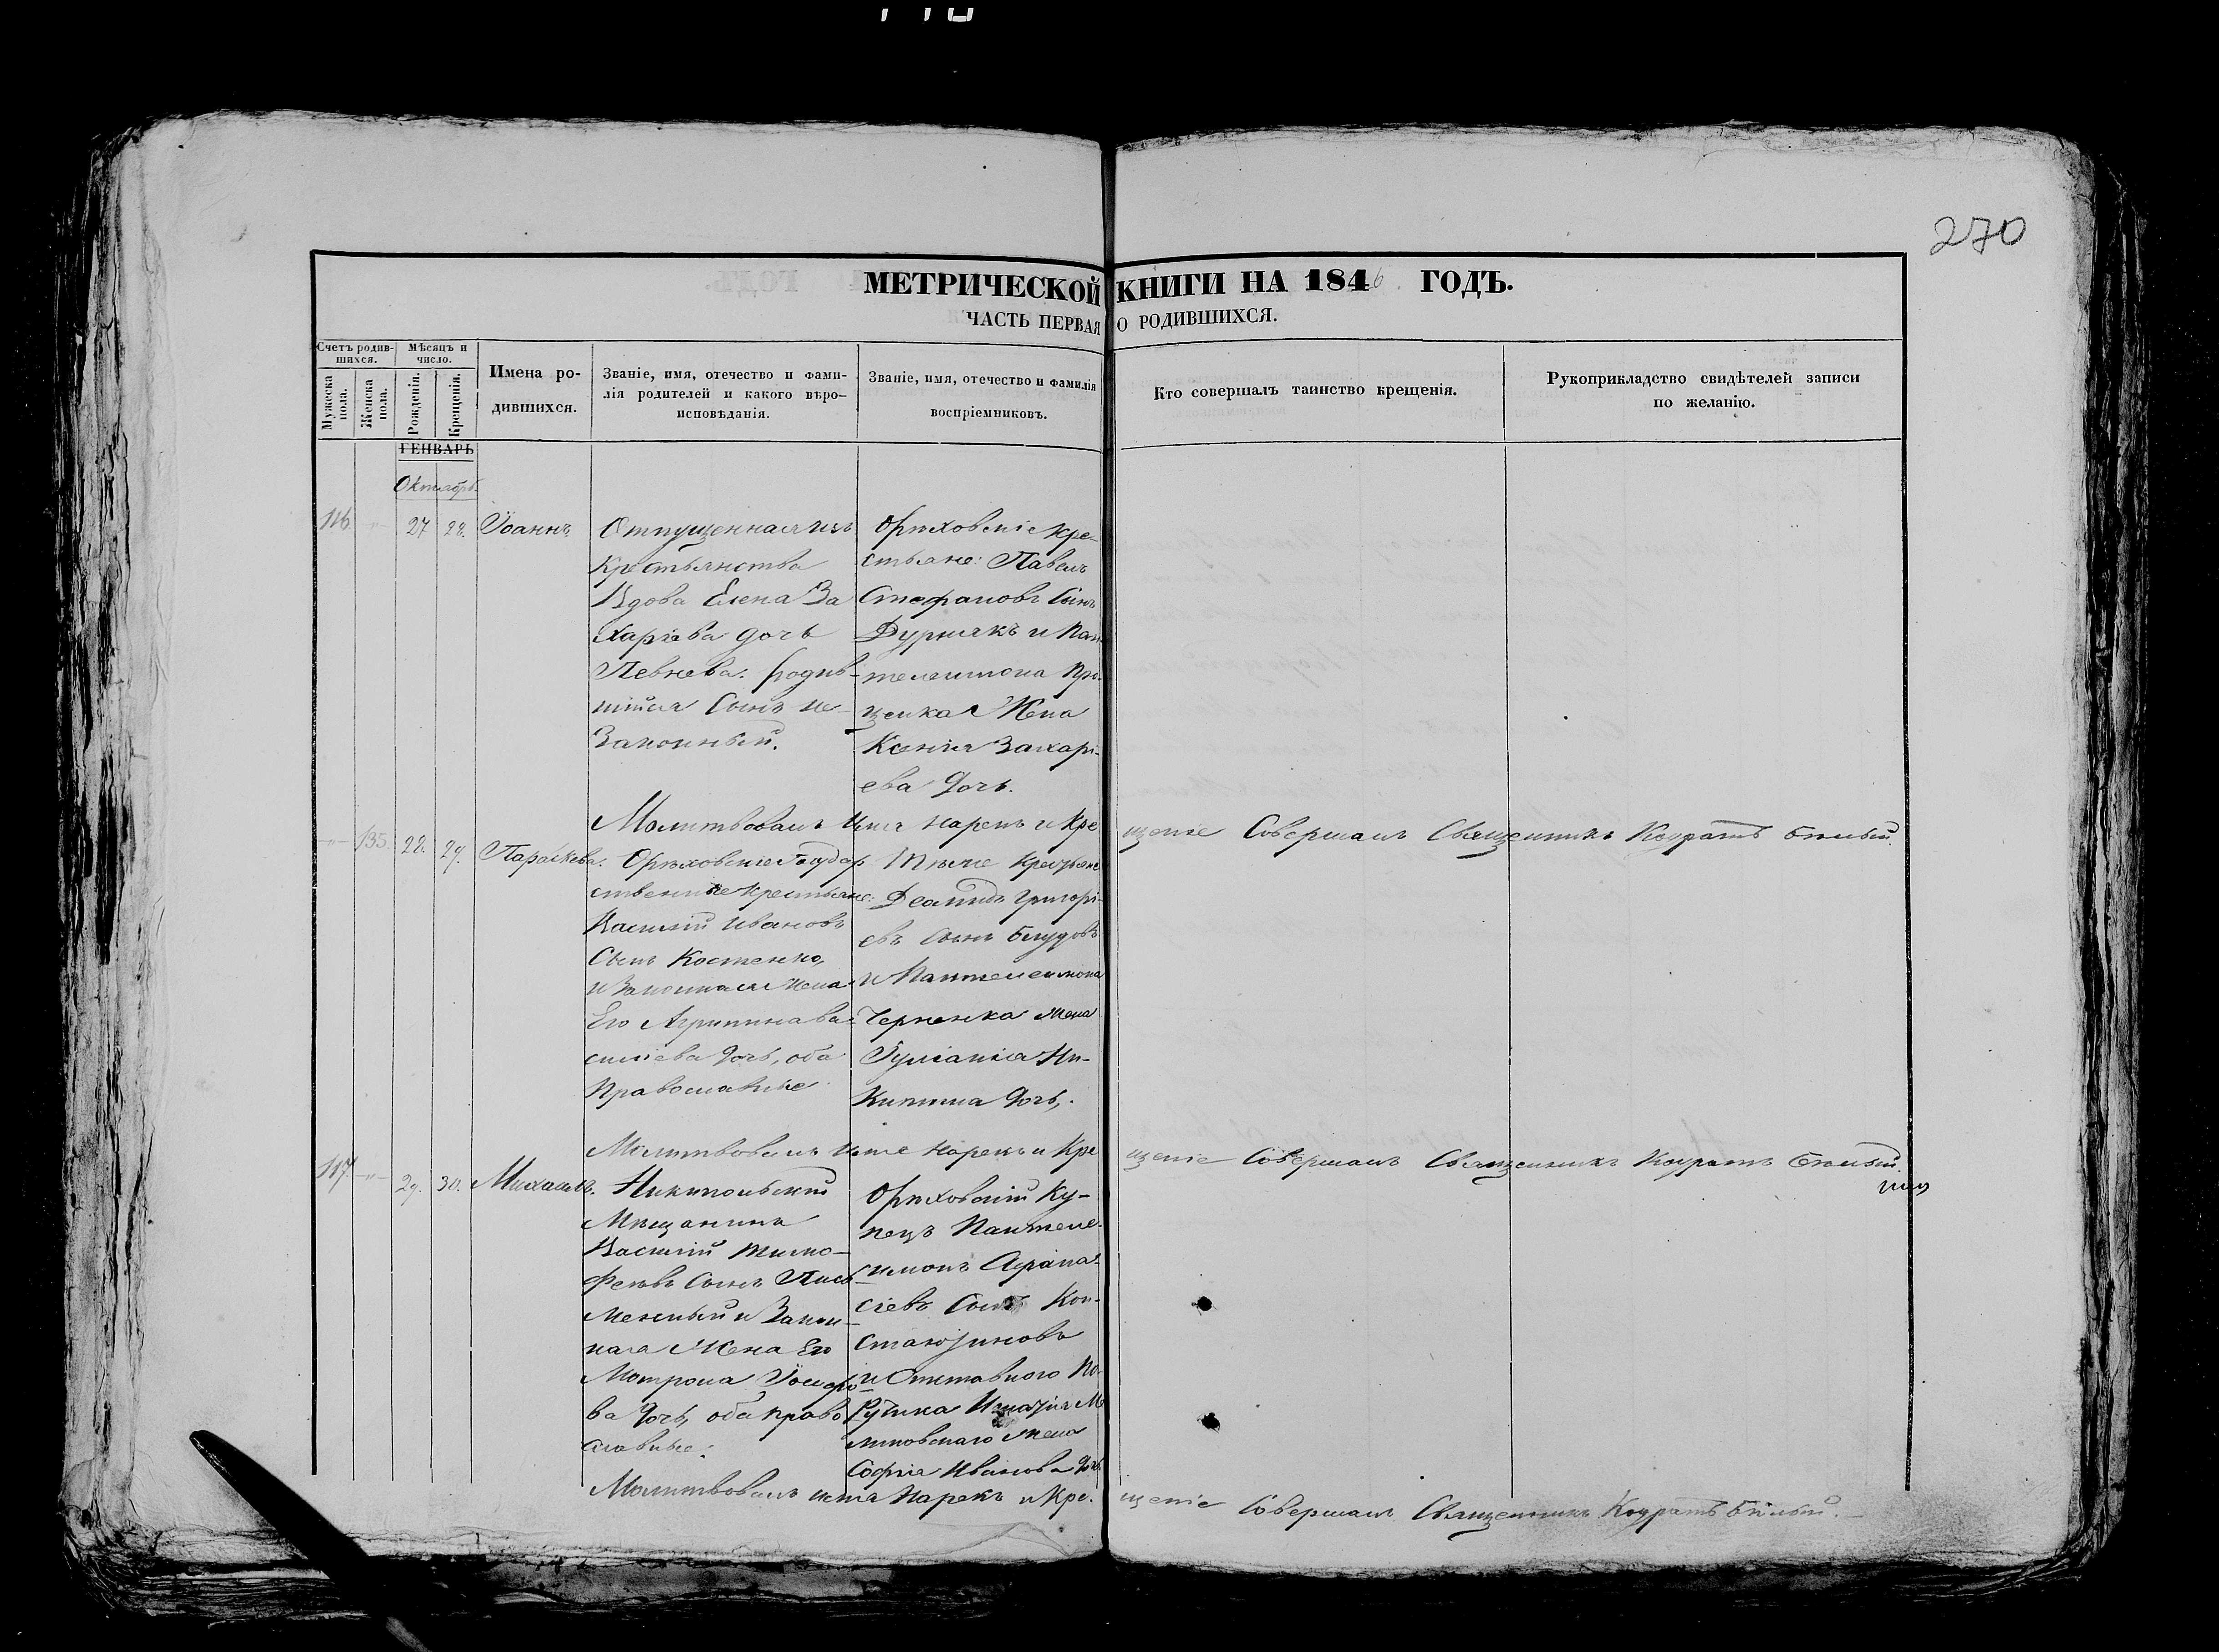 270
МЕТРИЧЕСКОЙ КНИГИ НА 1846 ГОДЪ.
ЧАСТЬ ПЕРВАЯ О РОДИВШИХСЯ.
Счетъ родив-
шихся.
Мужеска пола.
Женска пола.
Мѣсяцъ и
число.
Рожденія.
Крещенія.
Имена ро-
дившихся.
Званіе, имя, отечество и фами-
лія родителей и какого вѣро-
исповѣданія.
Званіе, имя, отечество и фамилія
воспріемниковъ.
Кто совершалъ таинство крещенія.
Рукоприкладство свидѣтелей записи
по желанію.
ГЕНВАРЬ
Октябрь
116. 27 28. Іоаннъ
Отпущенная изъ
Крестьянства
Вдова Елена За
харіева дочь
Певнева. родив-
шійся Сынъ не-
Законный.
Орѣховскіе кре-
стьяне: Павелъ
Стефановъ Сынъ
Дурнякъ и Пан-
телеимона Про-
ценка Жена
Ксенія Захарі-
ева Дочь.
Молитвовалъ Имя нарекъ и Кре щеніе Совершалъ Священникъ Кодратъ Бѣлый.
135. 28. 29. Параскева.
Орѣховскіе Государ
ственные крестьяне:
Василій Ивановъ
Сынъ Костенко,
и Законная Жена
Его Агрипина Ва-
силіева Дочь, оба
Православные
Тѣже Крестьяне
Демидъ Григорі-
евъ Сынъ Блудовъ
и Пантелеимона
Черненка Жена
Іуліанія Ни-
Китина Дочь.
Молитвовалъ Имя нарекъ и Кре щеніе Совершалъ Священникъ Кодратъ Бѣлый.
117. 29. 30. Михаилъ.
Никипольскій
Мѣщанинъ
Василій Тимо-
феевъ Сынъ Пись
менный и Закон-
ная Жена Его
Мотрона Іосифо
ва Дочь, оба право
славные.
Орѣховскій Ку-
пецъ Пантеле-
имонъ Афана-
сіевъ Сынъ Кон-
стантиновъ
и Отставного По-
ручика Игнатія М
линовскаго Жена
Софія Иванова Дочь
Молитвовалъ имя Нарекъ и Кре. щеніе Совершалъ Священникъ Кодратъ Бѣлый.